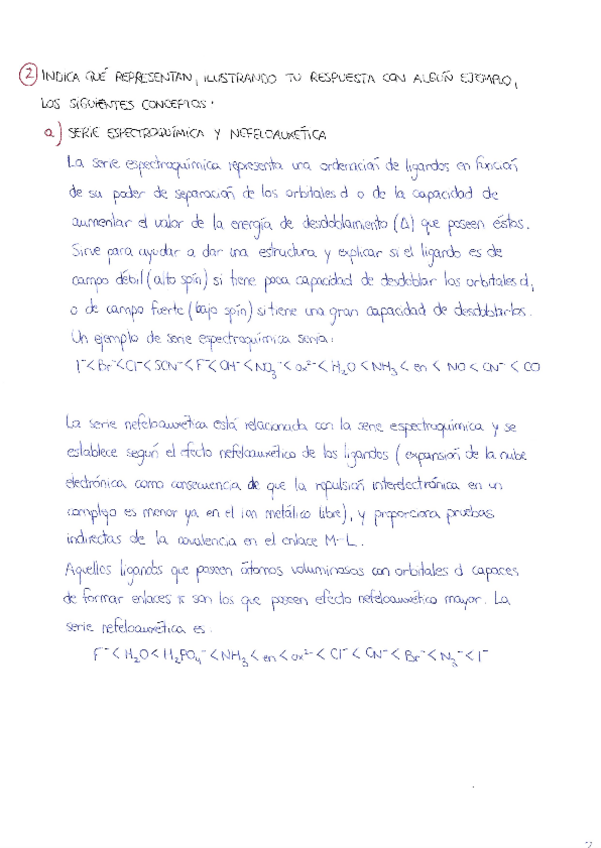 ② INDICA QUÉ REPRESENTAN, ILUSTRANDO TU RESPUESTA CON ALGÚN EJEMPLO,
LOS SIGUIENTES CONCEPTOS:
a) SERIE ESPECTROQUÍMICA Y NEFELOAUXÉTICA
La serie espectroquímica representa una ordenación de ligandos en función
de su poder de separación de los orbitales d o de la capacidad de
aumentar el valor de la energía de desdoblamiento (Δ) que poseen éstos.
Sirve para ayudar a dar una estructura y explicar si el ligando es de
campo débil (alto spín) si tiene poca capacidad de desdoblar los orbitales d,
o de campo fuerte (bajo spín) si tiene una gran capacidad de desdoblarlos.
Un ejemplo de serie espectroquímica sería:
I⁻ < Br⁻ < Cl⁻ < SCN⁻ < F⁻ < OH⁻ < NO₃⁻ < ox²⁻ < H₂O < NH₃ < en < NO < CN⁻ < CO
La serie nefeloauxética está relacionada con la serie espectroquímica y se
establece según el efecto nefeloauxético de los ligandos (expansión de la nube
electrónica como consecuencia de que la repulsión interelectrónica en un
complejo es menor ya en el ion metálico libre), y proporciona pruebas
indirectas de la covalencia en el enlace M-L.
Aquellos ligandos que poseen átomos voluminosos con orbitales d capaces
de formar enlaces π son los que poseen efecto nefeloauxético mayor. La
serie nefeloauxética es:
F⁻ < H₂O < H₂PO₄⁻ < NH₃ < en < ox²⁻ < Cl⁻ < CN⁻ < Br⁻ < N₃⁻ < I⁻